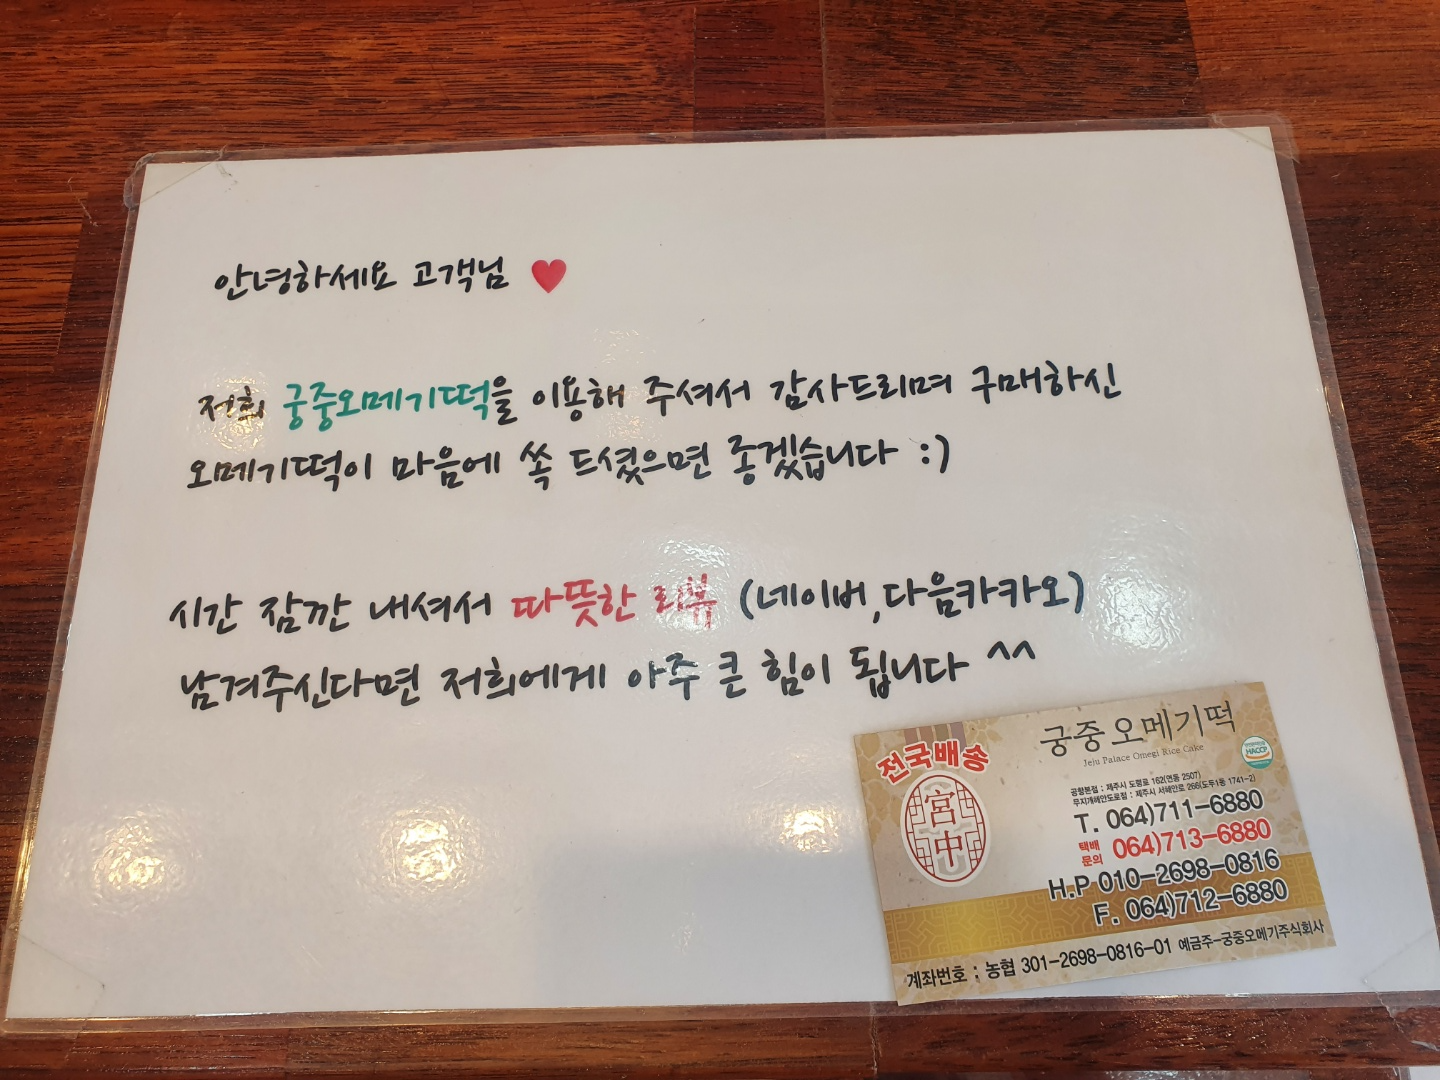 안녕하세요 고객님 ♥
저희 궁중오메기떡을 이용해 주셔서 감사드리며 구매하신
오메기떡이 마음에 쏙 드셨으면 좋겠습니다 :)
시간 잠깐 내셔서 따뜻한 리뷰 (네이버,다음카카오)
남겨주신다면 저희에게 아주 큰 힘이 됩니다 ^^
전국배송
宮中
궁중오메기떡
Jeju Palace Omegi Rice Cake
HACCP
공항본점 : 제주시 도령로 162(연동 2507)
무지개해안도로점 : 제주시 서해안로 266(도두1동 1741-2)
T. 064)711-6880
택배문의 064)713-6880
H.P 010-2698-0816
F. 064)712-6880
계좌번호 : 농협 301-2698-0816-01 예금주-궁중오메기주식회사